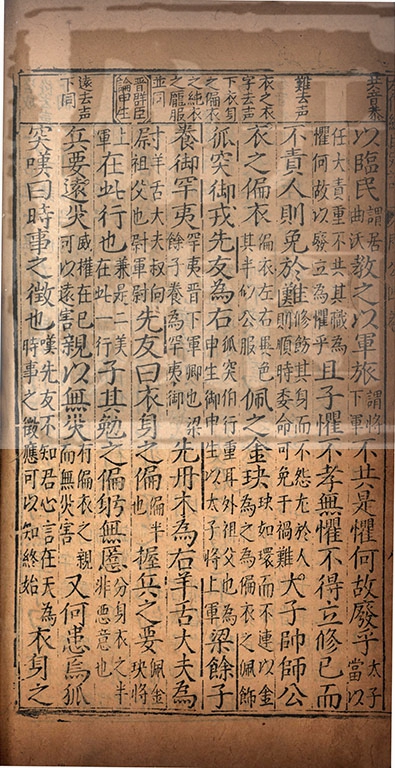 共音恭
以臨民謂居曲沃教之以軍旅謂將下軍不共是懼何故廢乎太子當以
任大責重不共其職為懼何故以廢立為懼乎且子懼不孝無懼不得立修已而
難去声
不責人則免於難修飭其身而不怨尤於人則順時委命可免于禍難大子帥師公
衣之衣字去声下衣身之偏衣之純衣之龐服並同
衣之偏衣偏衣左右異色其半似公服佩之金玦玦如環而不連以金為之為偏衣之佩飾
狐突御戎先友為右狐突伯行重耳外祖父也為申生御申生以太子將上軍梁餘子
養御罕夷罕夷晉下軍卿也梁餘子養為罕夷御先丹木為右羊舌大夫為
晉群臣論申生
尉羊舌大夫叔向祖父也尉軍尉先友曰衣身之偏偏半也握兵之要佩金玦將
上軍在此行也兼是二美在此一行子其勉之偏躬無慝分身衣之半非惡意也
遠去声下同
兵要遠災威權在已可以遠害親以無災有偏衣之親而無災害又何患焉狐
突嘆曰時事之徵也嘆先友不知君心言在天為時事之徵應可以知終始衣身之